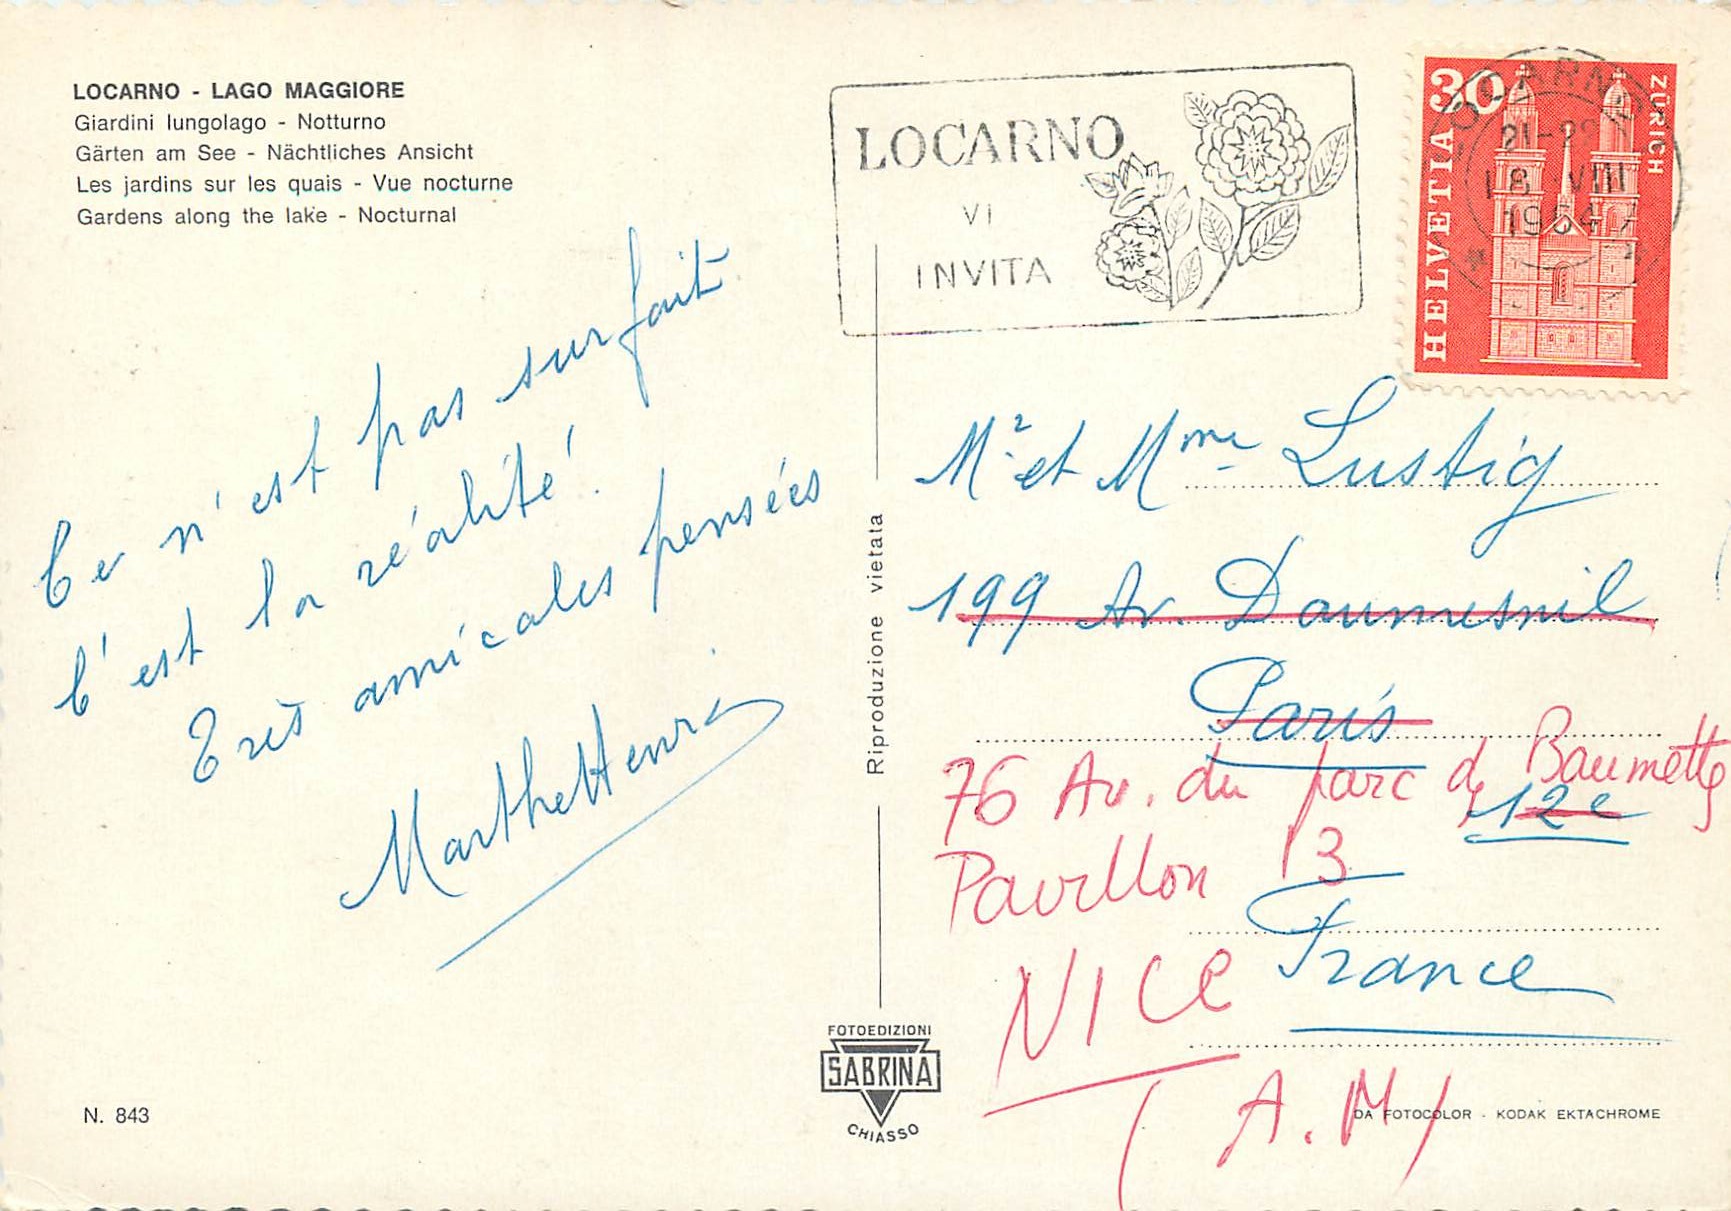 LOCARNO - LAGO MAGGIORE
Giardini lungolago - Notturno
Gärten am See - Nächtliches Ansicht
Les jardins sur les quais - Vue nocturne
Gardens along the lake - Nocturnal
Ce n'est pas surfait
C'est la réalité!
Très amicales pensées
Marthe Henri
N. 843
Riproduzione vietata
FOTOEDIZIONI
SABRINA
CHIASSO
LOCARNO
VI
INVITA
30
HELVETIA
ZÜRICH
LOCARNO
18 VIII
1964
Mr et Mme Lustig
199 Av. Daumesnil
Paris
12e
76 Av. du parc de Baumettes
Pavillon 13
France
NICE
(A.M)
DA FOTOCOLOR - KODAK EKTACHROME